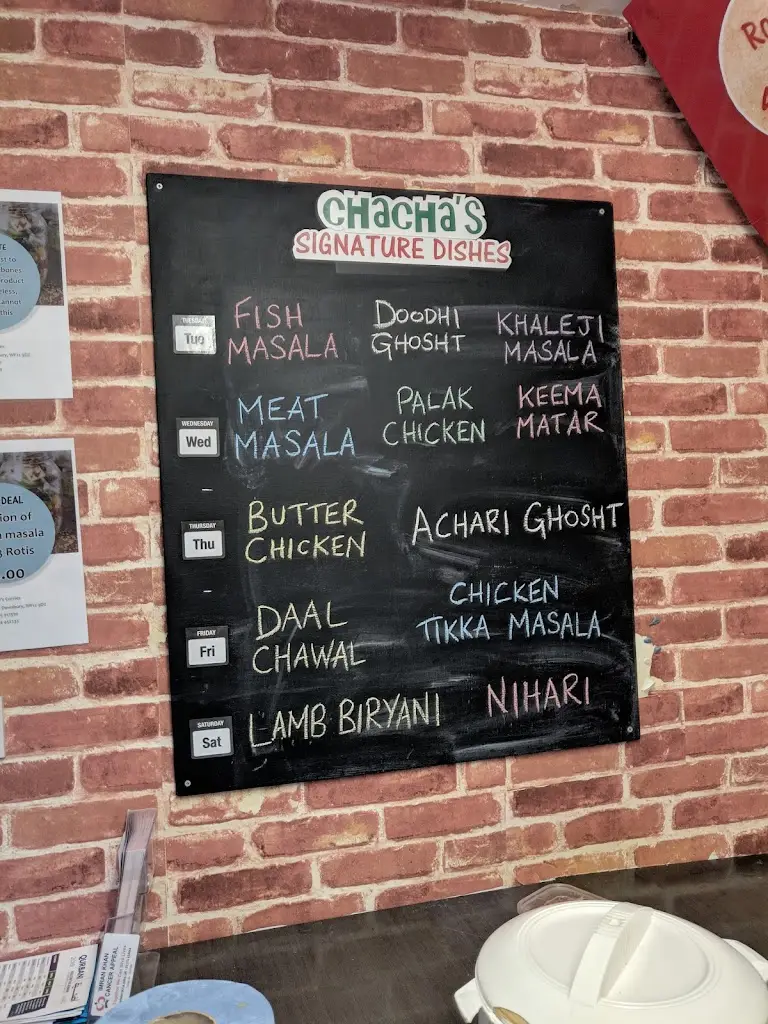 CHACHA'S
SIGNATURE DISHES
TUESDAY
Tue
FISH
MASALA
DOODHI
GHOSHT
KHALEJI
MASALA
WEDNESDAY
Wed
MEAT
MASALA
PALAK
CHICKEN
KEEMA
MATAR
THURSDAY
Thu
BUTTER
CHICKEN
ACHARI GHOSHT
FRIDAY
Fri
DAAL
CHAWAL
CHICKEN
TIKKA MASALA
SATURDAY
Sat
LAMB BIRYANI
NIHARI
bones
DEAL
masala
Rotis
.00
QURBANI
IMRAN KHAN
CANCER APPEAL